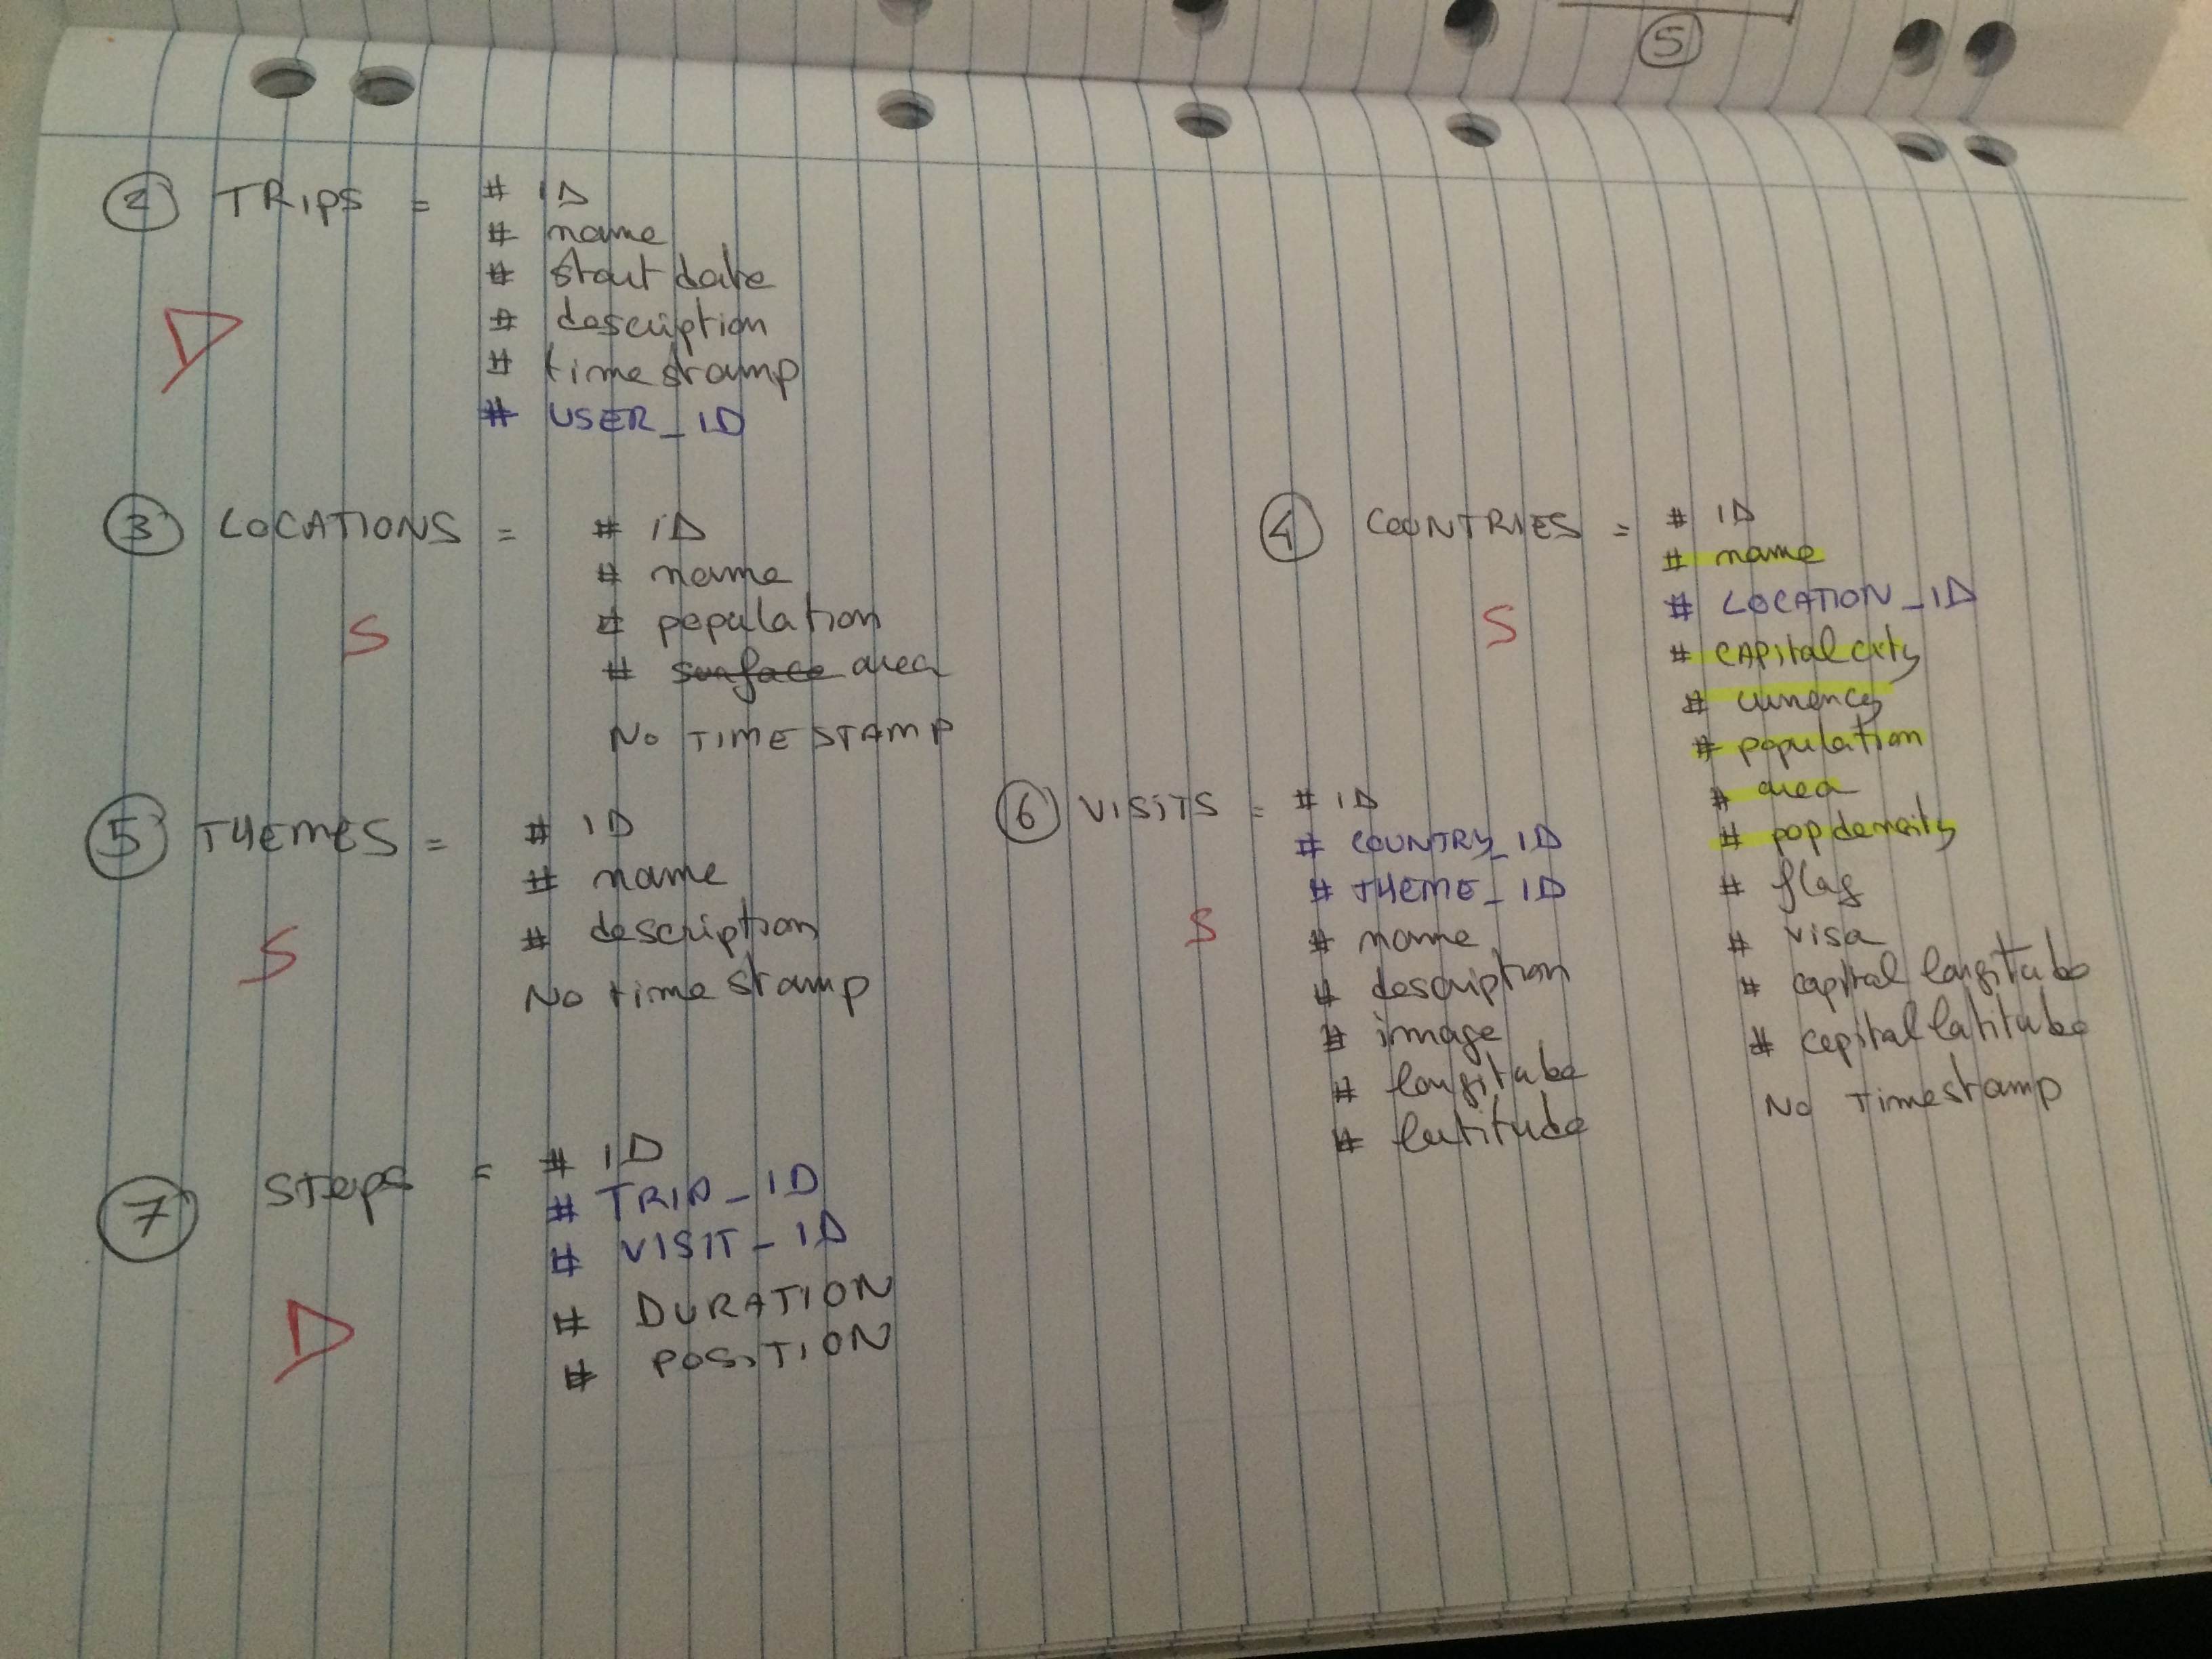 5
2 TRIPS = # ID
# name
# start date
# description
# timestamp
# USER_ID
D
3 LOCATIONS = # ID
# name
# population
# surface area
No TIMESTAMP
S
4 COUNTRIES = # ID
# name
# LOCATION_ID
# CAPital city
# currency
# population
# area
# pop density
# flag
# visa
# capital longitude
# capital latitude
No Timestamp
S
5 THEMES = # ID
# name
# description
No timestamp
S
6 VISITS = # ID
# COUNTRY_ID
# THEME_ID
# name
# description
# image
# longitude
# latitude
S
7 STEPS = # ID
# TRIP_ID
# VISIT_ID
# DURATION
# POSITION
D